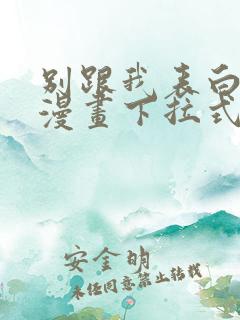 别跟我表白
漫畫下拉式
安金昀
未经同意禁止转载